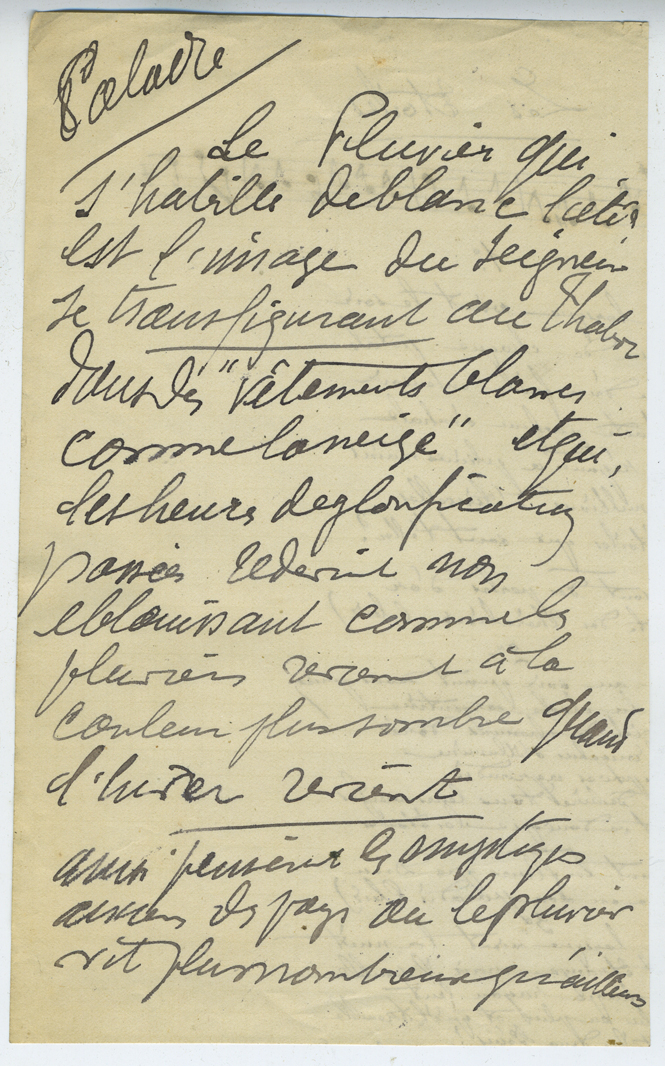 Le Pluvier qui
s'habille de blanc l'été,
est l'image du Seigneur
se transfigurant au Thabor
dans des "vêtements blancs
comme la neige" et qui,
les heures de glorification
passées redevint non
eblouissant comme le
pluvier revient à la
couleur plus sombre quand
l'hiver revient
ainsi pensèrent les mystiques
anciens des pays où le pluvier
vit plus nombreux qu'ailleurs